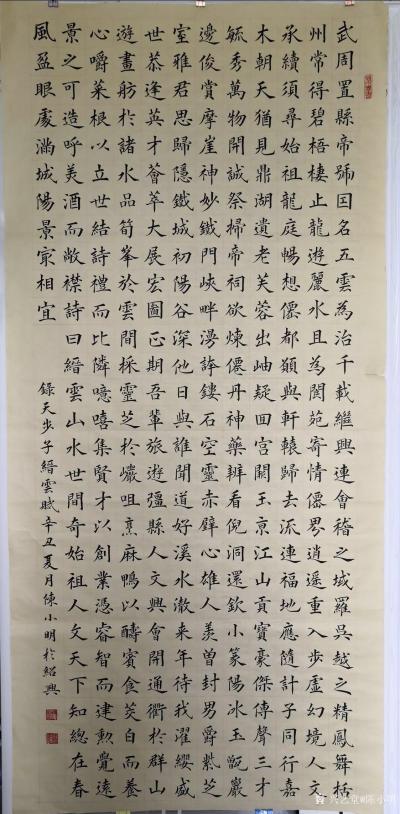 武周置縣帝號因名五雲為治千載繼興連會稽之城羅吳越之精鳳舞括
州常得碧梧棲止龍遊麗水且為閬苑寄情僊界逍遥重入步虛幻境人文
承續須尋始祖龍庭暢想僊都顓與軒轅歸去流連福地應隨計子同行嘉
木朝天猶見鼎湖遺老芙蓉出岫疑回宮闕玉京江山貢寶豪傑傳聲三才
毓秀萬物開誠祭掃帝祠欲煉僊丹神藥辨看倪洞還欽小篆陽冰玉甑巖
邊俊賞摩崖神妙鐵門峽畔漫誇鏤石空靈赤壁心雄人羨曾封男爵紫芝
室雅君思歸隱鐵城初陽谷深他日與誰聞道好溪水澈来年待我濯纓盛
世恭逢英才薈萃大展宏圖正期吾輩旅遊彊縣人文興會開通衢於群山
遊畫舫於諸水品筍峯於雲間採靈芝於巘咀烹麻鴨以醻賓食茭白而養
心嚼菜根以立世結詩禮而比隣噫嘻集賢才以創業憑睿智而建勳覺遠
景之可造呼美酒而敞襟詩曰縉雲山水世間奇始祖人文天下知總在春
風盈眼處滿城陽景冣相宜
錄天步子縉雲賦辛丑夏月陳小明於紹興
兴艺堂@陈小明